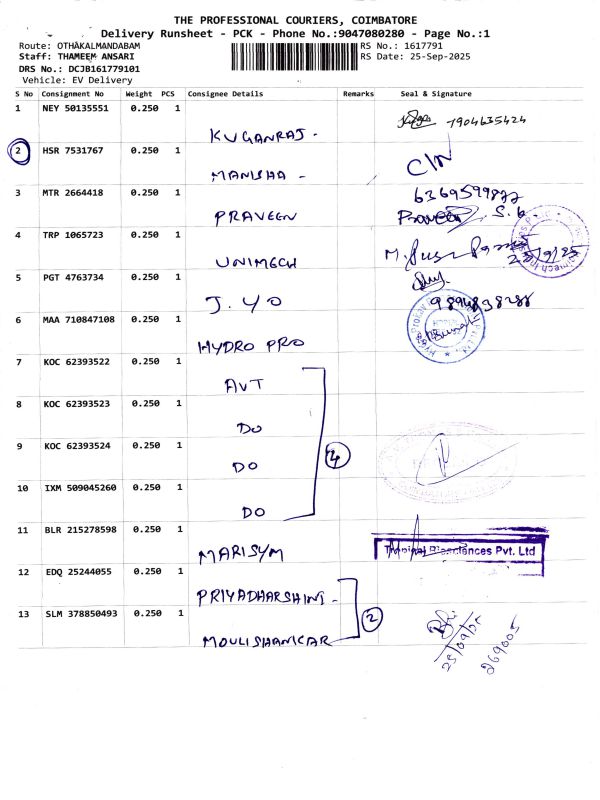 THE PROFESSIONAL COURIERS, COIMBATORE
Delivery Runsheet - PCK - Phone No.:9047080280 - Page No.:1
Route: OTHAKALMANDABAM
RS No.: 1617791
Staff: THAMEEM ANSARI
RS Date: 25-Sep-2025
DRS No.: DCJB161779101
Vehicle: EV Delivery
S No Consignment No Weight PCS Consignee Details Remarks Seal & Signature
1 NEY 50135551 0.250 1
KUGANRAJ - 7904635424
2 HSR 7531767 0.250 1
MANISHA - C/N
3 MTR 2664418 0.250 1
6369599877
PRAVEEN Praveen S.G.
4 TRP 1065723 0.250 1
UNIMECH
5 PGT 4763734 0.250 1
J. YO 9894838288
6 MAA 710847108 0.250 1
HYDRO PRO
7 KOC 62393522 0.250 1
AVT
8 KOC 62393523 0.250 1
DO
9 KOC 62393524 0.250 1
DO 4
10 IXM 509045260 0.250 1
DO
11 BLR 215278598 0.250 1
MARISYM Biosciences Pvt. Ltd
12 EDQ 25244055 0.250 1
PRIYADHARSHINI -
13 SLM 378850493 0.250 1
2
MOULISHANKAR
25/09/25
269005